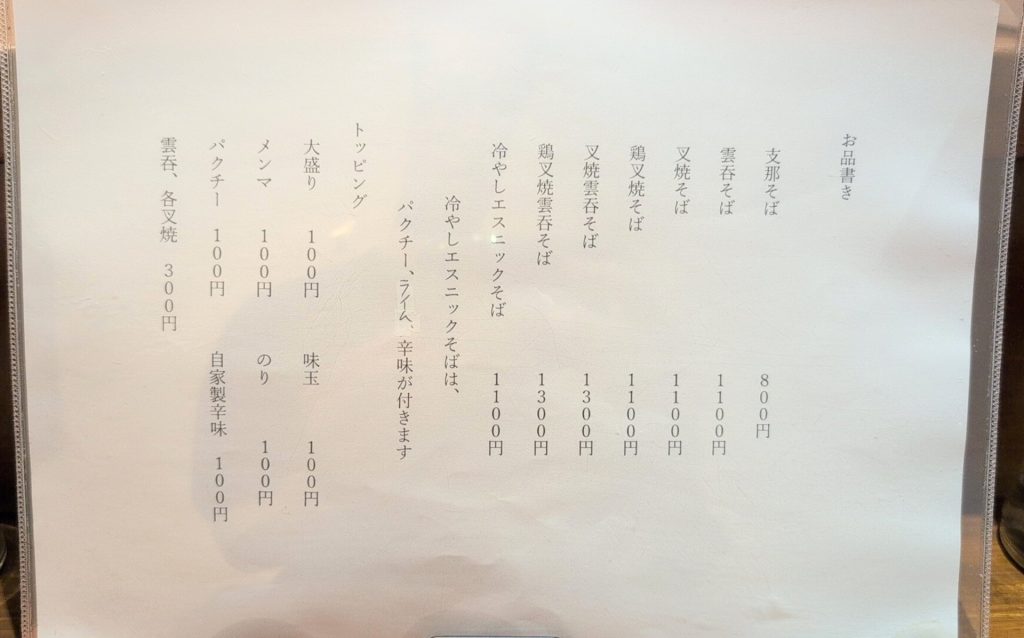 お品書き
支那そば 800円
雲呑そば 1100円
叉焼そば 1100円
鶏叉焼そば 1100円
叉焼雲呑そば 1300円
鶏叉焼雲呑そば 1300円
冷やしエスニックそば 1100円
冷やしエスニックそばは、
パクチー、ライム、辛味が付きます
トッピング
大盛り 100円 味玉 100円
メンマ 100円 のり 100円
パクチー 100円 自家製辛味 100円
雲呑、各叉焼 300円